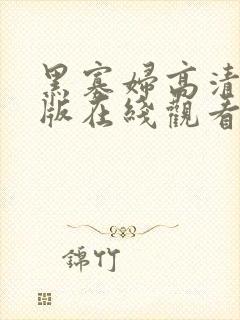 黑寡婦高清
版在綫觀看
錦竹